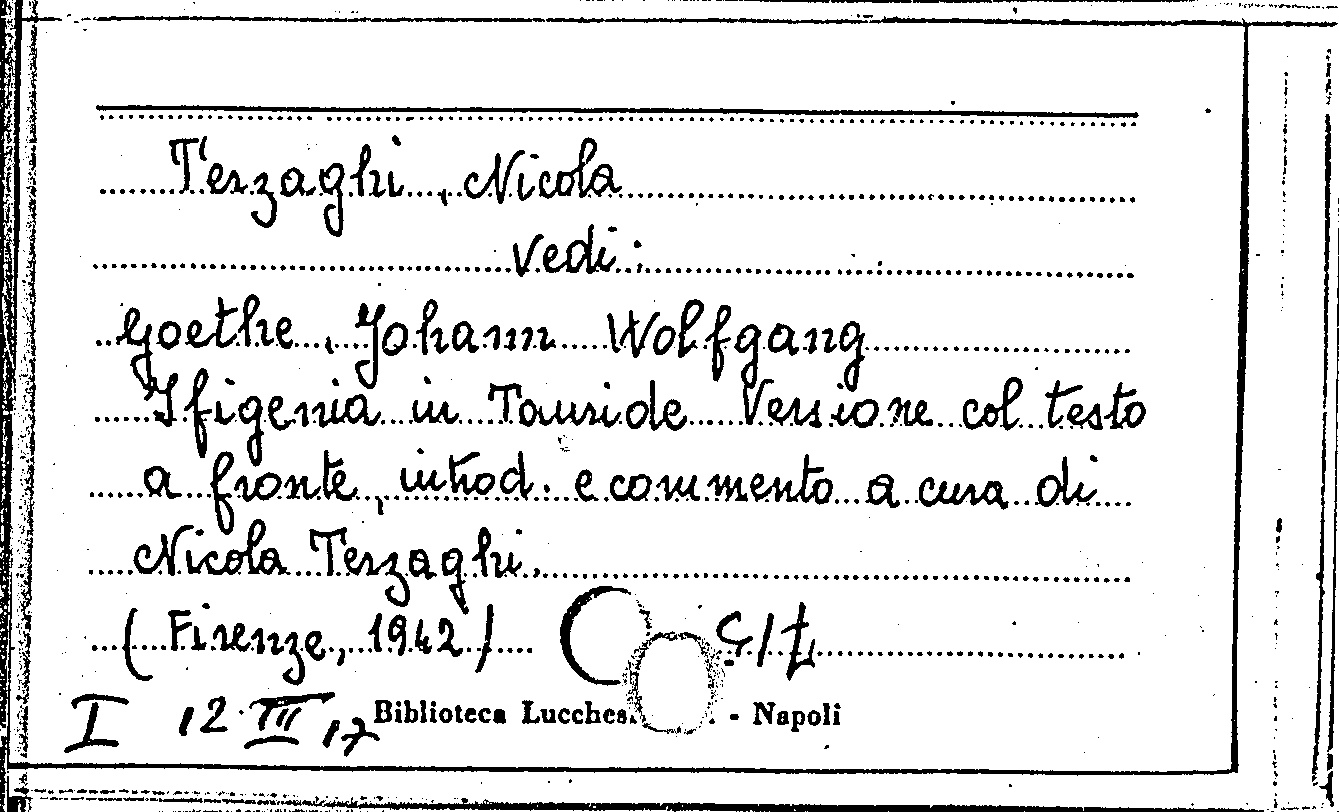 Terzaghi, Nicola
vedi:
Goethe, Johann Wolfgang
Ifigenia in Tauride Versione col testo
a fronte, introd. e commento a cura di
Nicola Terzaghi.
(Firenze, 1942)
I 12 III 17
Biblioteca - Napoli